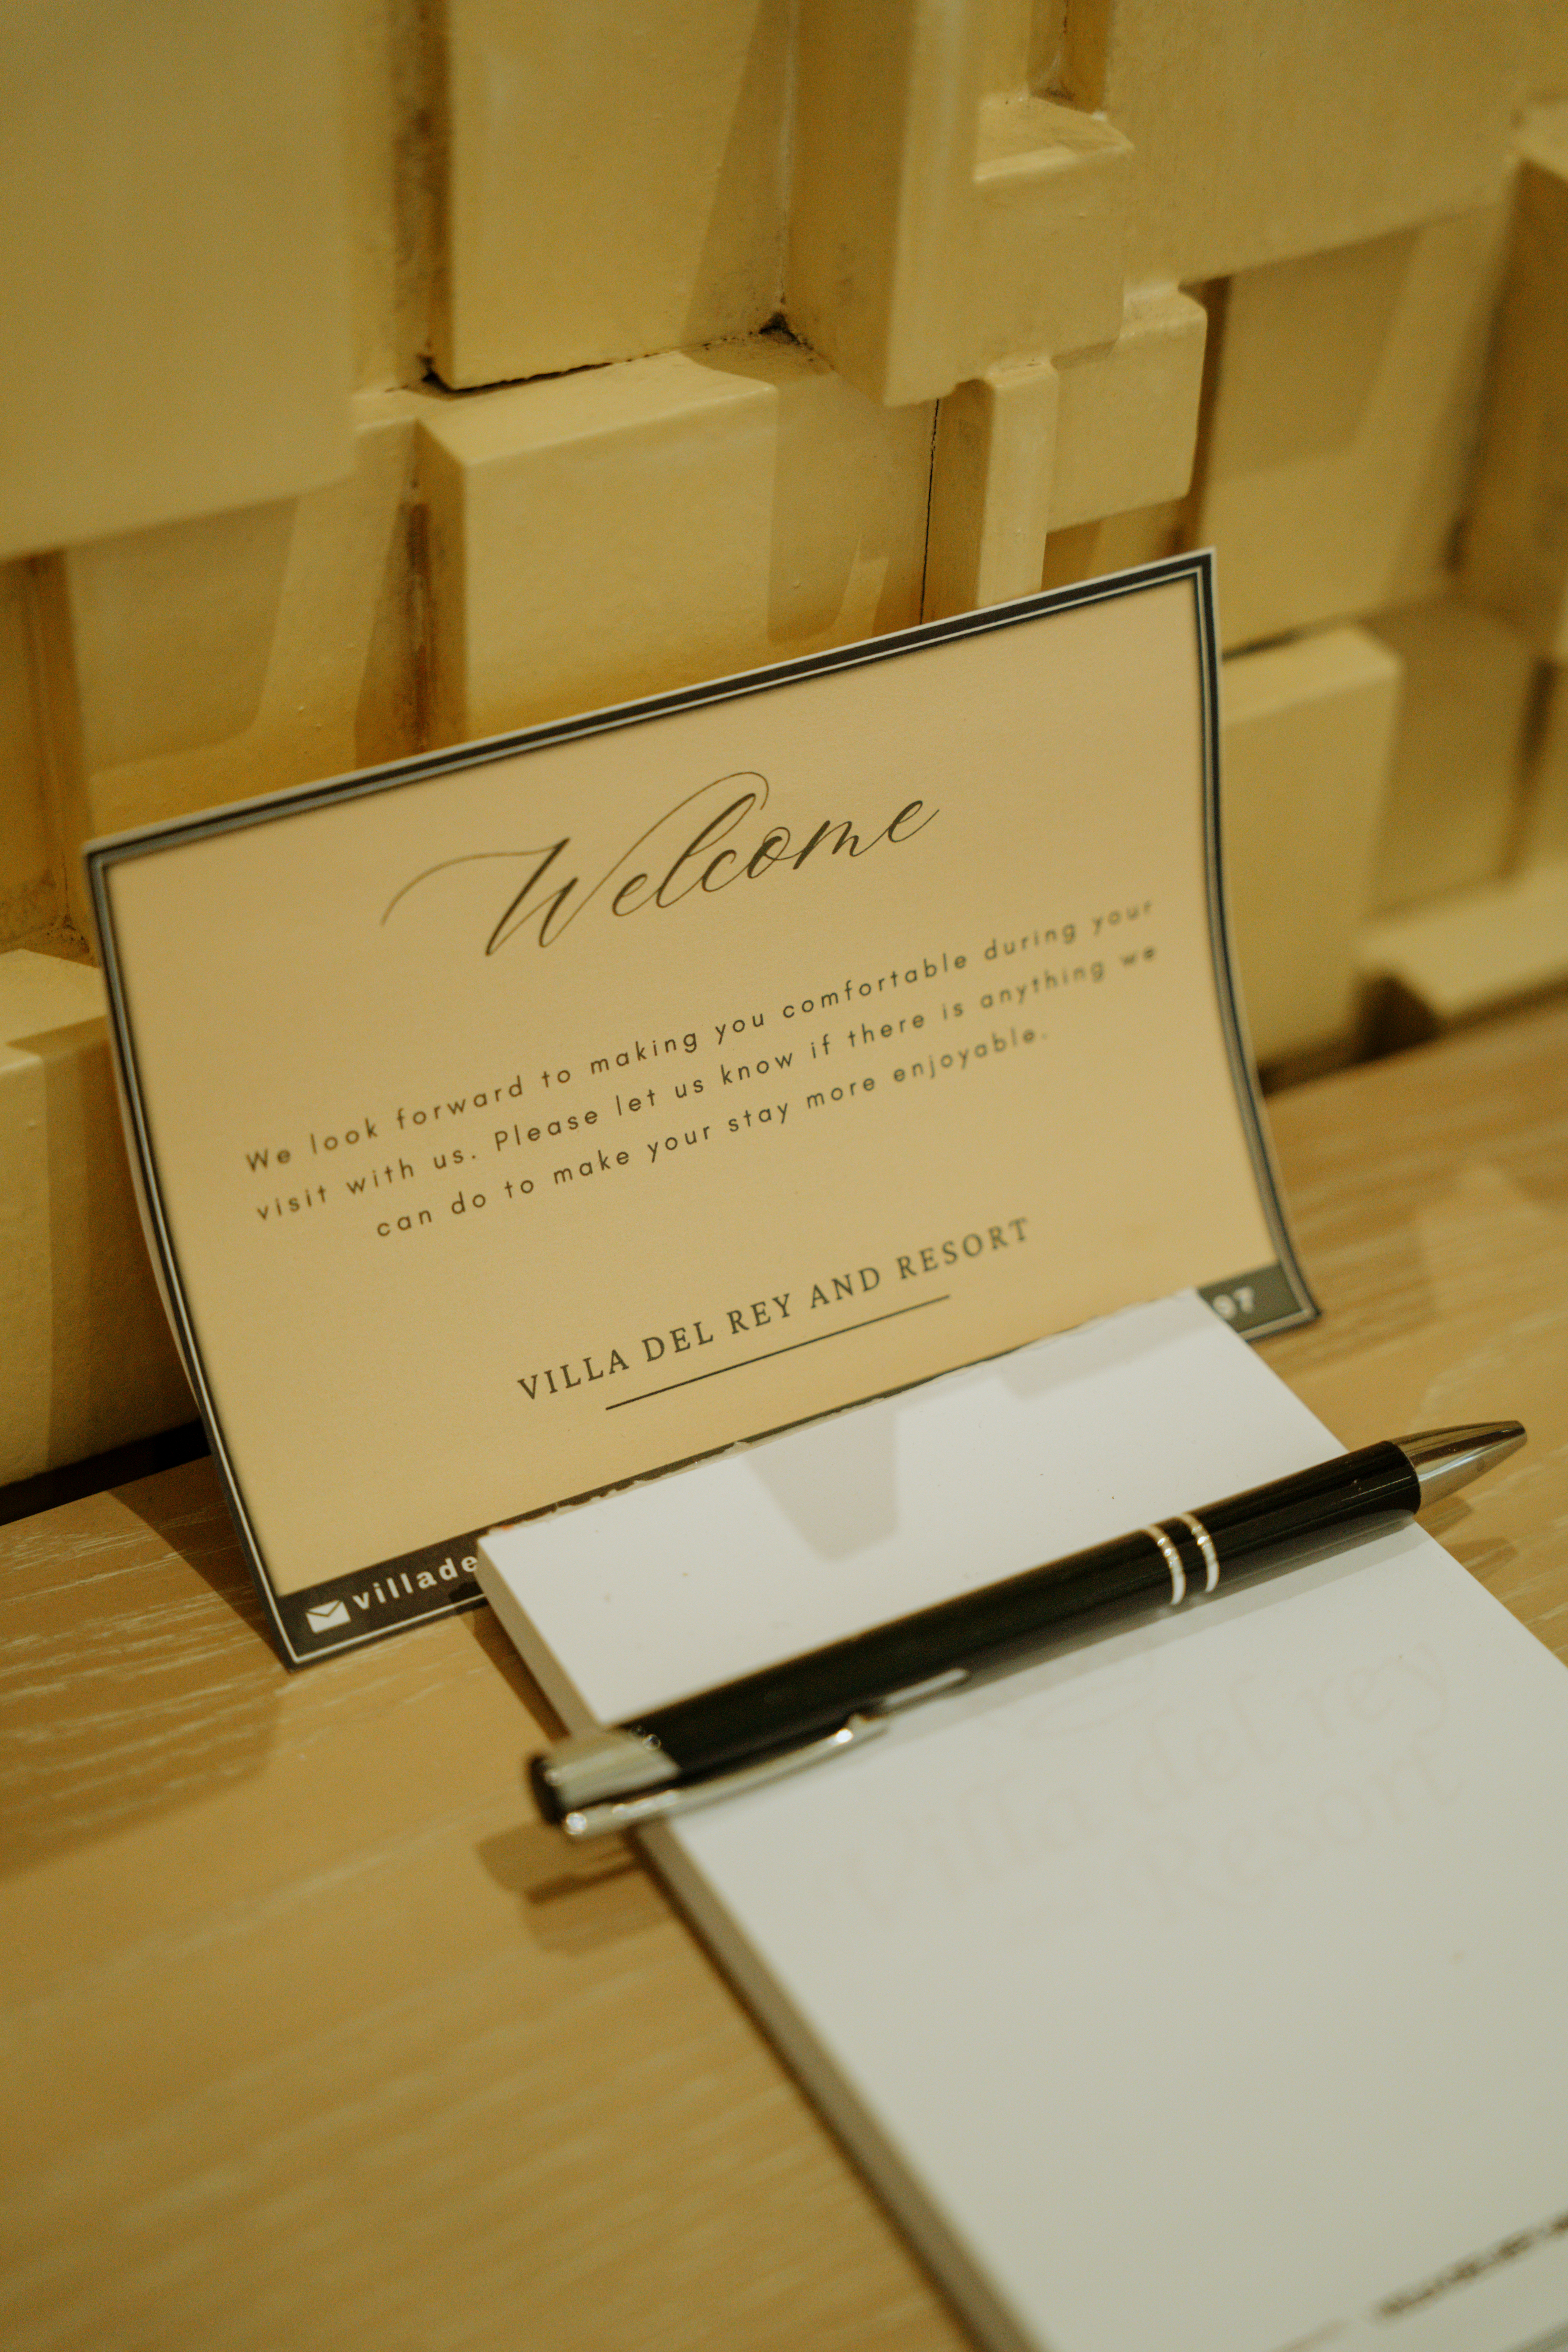 Welcome
We look forward to making you comfortable during your
visit with us. Please let us know if there is anything we
can do to make your stay more enjoyable.
VILLA DEL REY AND RESORT
villade
97
Villa del rey
Resort